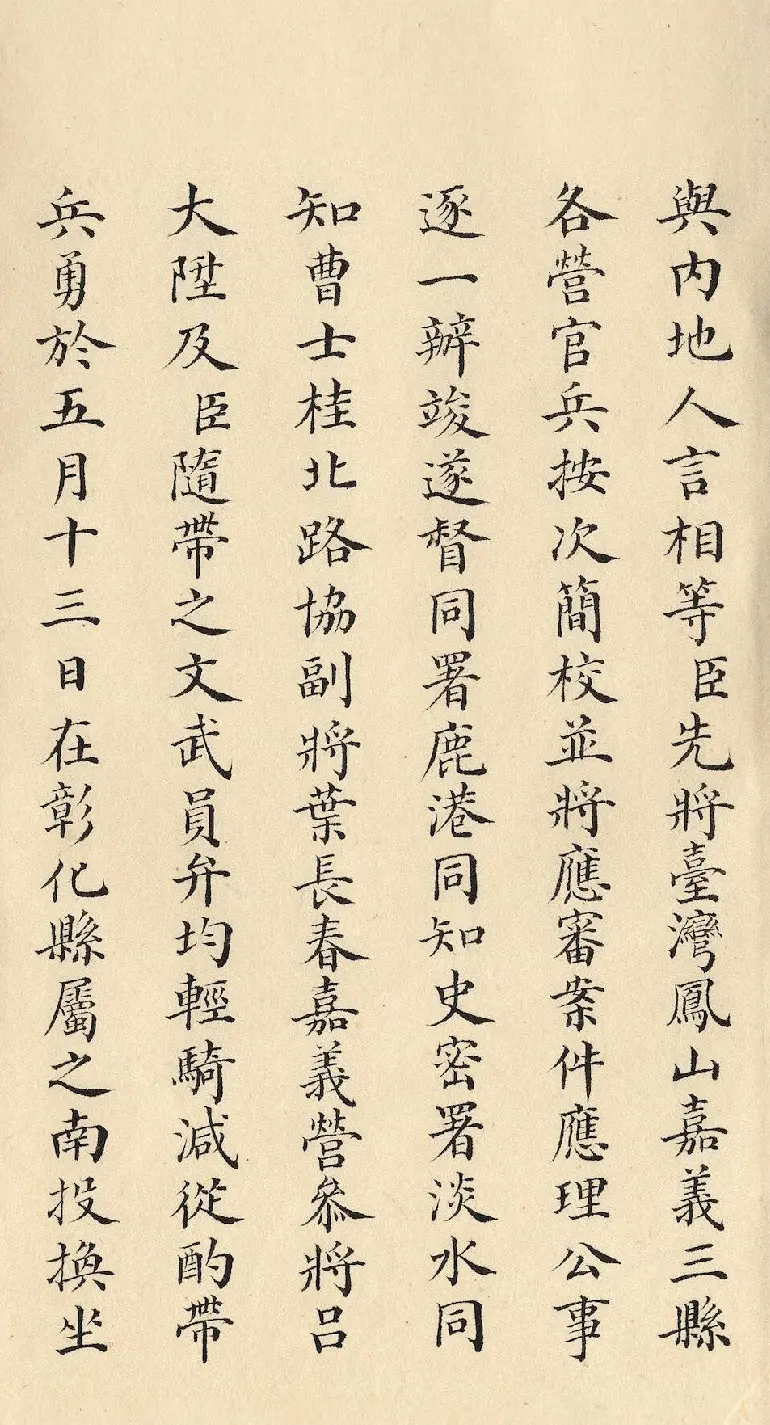 與内地人言相等臣先將臺灣鳳山嘉義三縣
各營官兵按次簡校並將應審案件應理公事
逐一辦竣遂督同署鹿港同知史密署淡水同
知曹士桂北路協副將葉長春嘉義營叅將呂
大陞及臣隨帶之文武員弁均輕騎減從酌帶
兵勇於五月十三日在彰化縣屬之南投換坐